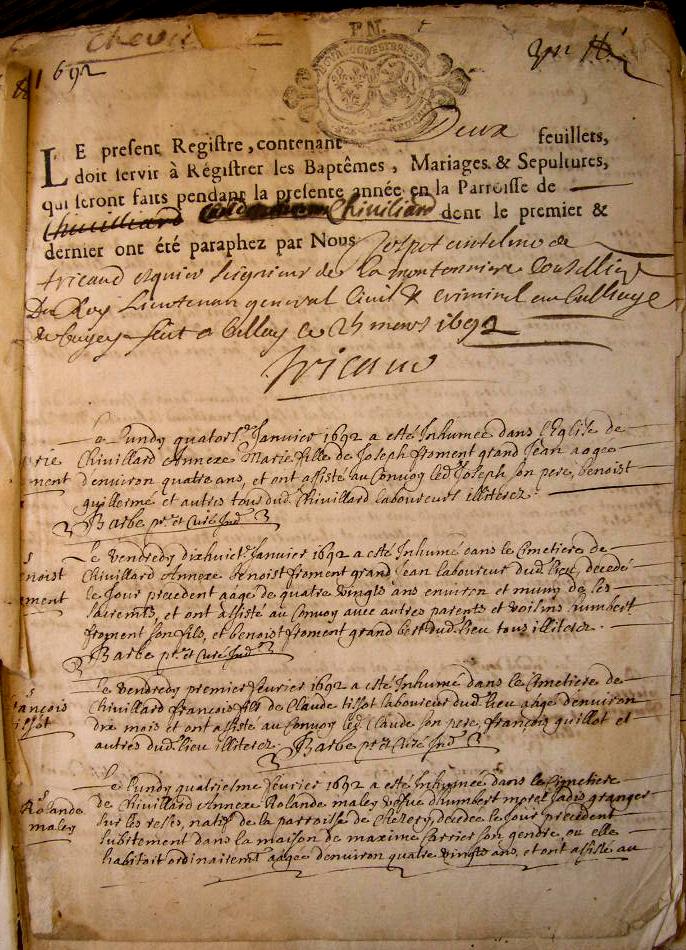 Chevil
P.N.
1692
Deux feuillets,
LE present Registre, contenant
doit servir à Régistrer les Baptêmes, Mariages & Sepultures,
qui seront faits pendant la presente année en la Parroisse de
Chivilliard Chiviliard dont le premier &
dernier ont été paraphez par Nous Jospt antelme de
tricaud esquier seigneur de la montonniere Conseillier
Du Roy Lieutenan general Civil & criminel au balliage
de bugey seut a belley ce 24 mars 1692
Tricaud
Le Lundy quators.e Janvier 1692 a esté Inhumée dans l'Eglise de
rie Chivillard Annexe Marie fille de Joseph froment grand Jean aagee
ment d'environ quatre ans, et ont assisté au Convoy led. Joseph son pere, benoist
guillerme et autres tous dud. Chivillard laboureurs illiterez.
Barbe ptre et Curé Ind
s Le Vendredy dixhuict.e Janvier 1692 a esté Inhumé dans le Cimetiere de
noist Chivillard Annexe benoist froment grand Jean laboureur dud. lieu, decedé
ment le Jour precedent aagé de quatre vingts ans environ et muny de ses
sacremts, et ont assisté au Convoy avec autres parents et voisins humbert
froment son fils, et benoist froment grand bert dud. lieu tous illiterez.
Barbe ptre et Curé Ind
s Le vendredy premier fevrier 1692 a esté Inhumé dans le Cimetiere de
rançois Chivillard françois fils de Claude tissot laboureur dud. lieu aagé d'environ
issot dix mois et ont assisté au Convoy led. Claude son pere, françois guillot et
autres dud. lieu illiterez. Barbe ptre et Curé Ind
s Le Lundy quatriesme fevrier 1692 a esté Inhumée dans le Cimetiere
Rolande de Chivillard Annexe Rolande maley vefve d'humbert morel Jadis granger
maley sur les natif de la parroisse de Chezery, decedee le Jour precedent
subitement dans la maison de maxime Carrier son gendre, ou elle
habitoit ordinairemt aagee d'environ quatre vingts ans, et ont assisté au